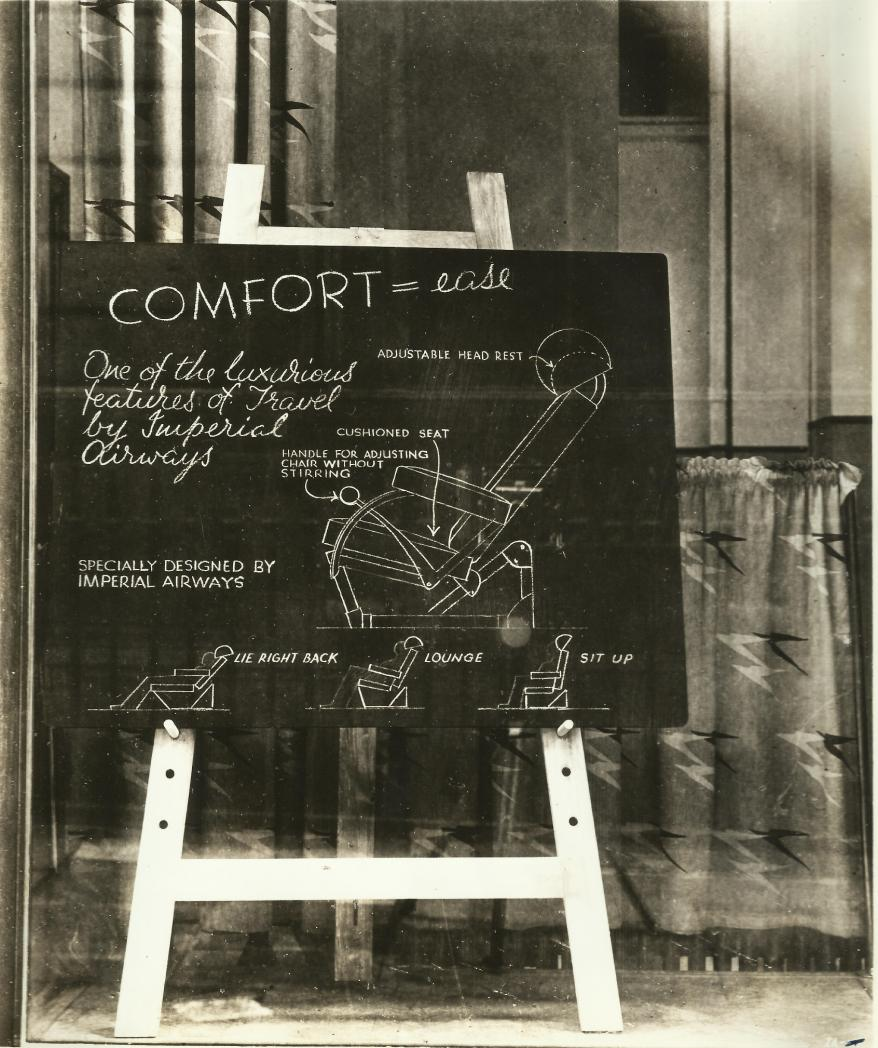 COMFORT = ease
One of the luxurious
features of Travel
by Imperial
Airways
ADJUSTABLE HEAD REST
CUSHIONED SEAT
HANDLE FOR ADJUSTING
CHAIR WITHOUT
STIRRING
SPECIALLY DESIGNED BY
IMPERIAL AIRWAYS
LIE RIGHT BACK
LOUNGE
SIT UP